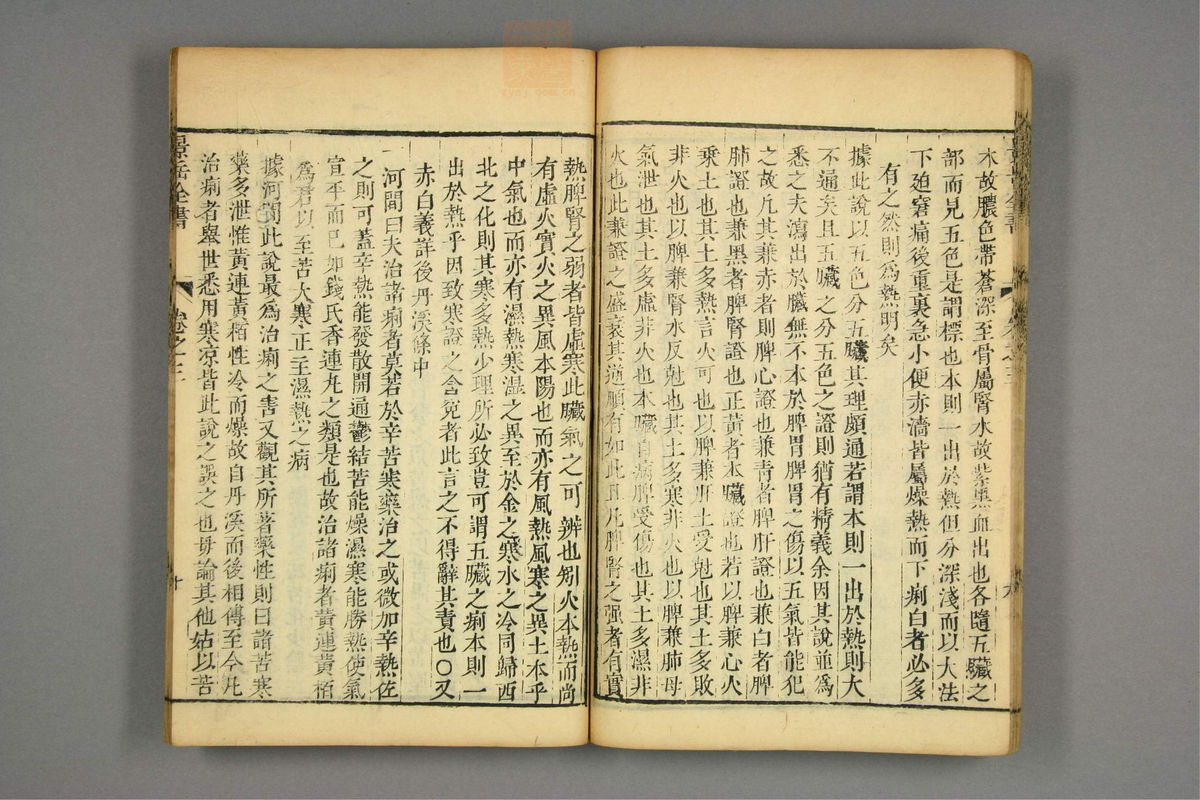 木故膿色帶蒼深至骨屬腎水故紫黑血出也各隨五臟之
部而見五色是謂標也本則一出於熱但分深淺而以大法
下廹窘痛後重裏急小便赤濇皆屬燥熱而下痢白者必多
有之然則爲熱明矣
據此說以五色分五臟其理頗通若謂本則一出於熱則大
不通矣且五臟之分五色之證則猶有精義余因其說並爲
悉之夫瀉出於臟無不本於脾胃脾胃之傷以五氣皆能犯
之故凢其兼赤者則脾心證也兼青者脾肝證也兼白者脾
肺證也兼黑者脾腎證也正黃者本臟證也若以脾兼心火
乘土也其土多熱言火可也以脾兼肝土受尅也其土多敗
非火也以脾兼腎水反尅也其土多寒非火也以脾兼肺母
氣泄也其土多虛非火也本臟自病脾受傷也其土多濕非
火也此兼證之盛衰其逆順有如此且凢脾腎之强者有實
熱脾腎之弱者皆虛寒此臟氣之可辨也矧火本熱而尚
有虛火實火之異風本陽也而亦有風熱風寒之異土本乎
中氣也而亦有濕熱寒濕之異至於金之寒水之冷同歸西
北之化則其寒多熱少理所必致豈可謂五臟之痢本則一
出於熱乎因致寒證之含冤者此言之不得辭其責也○又
赤白義詳後丹溪條中
河間曰夫治諸痢者莫若於辛苦寒藥治之或微加辛熱佐
之則可蓋辛熱能發散開通鬱結苦能燥濕寒能勝熱使氣
宣平而已如錢氏香連丸之類是也故治諸痢者黃連黃栢
爲君以至苦大寒正主濕熱之病
據河間此說最爲治痢之害又觀其所著藥性則曰諸苦寒
藥多泄惟黃連黃栢性冷而燥故自丹溪而後相傳至今凢
治痢者舉世悉用寒凉皆此說之誤之也毋論其他姑以苦
景岳全書
卷之
十